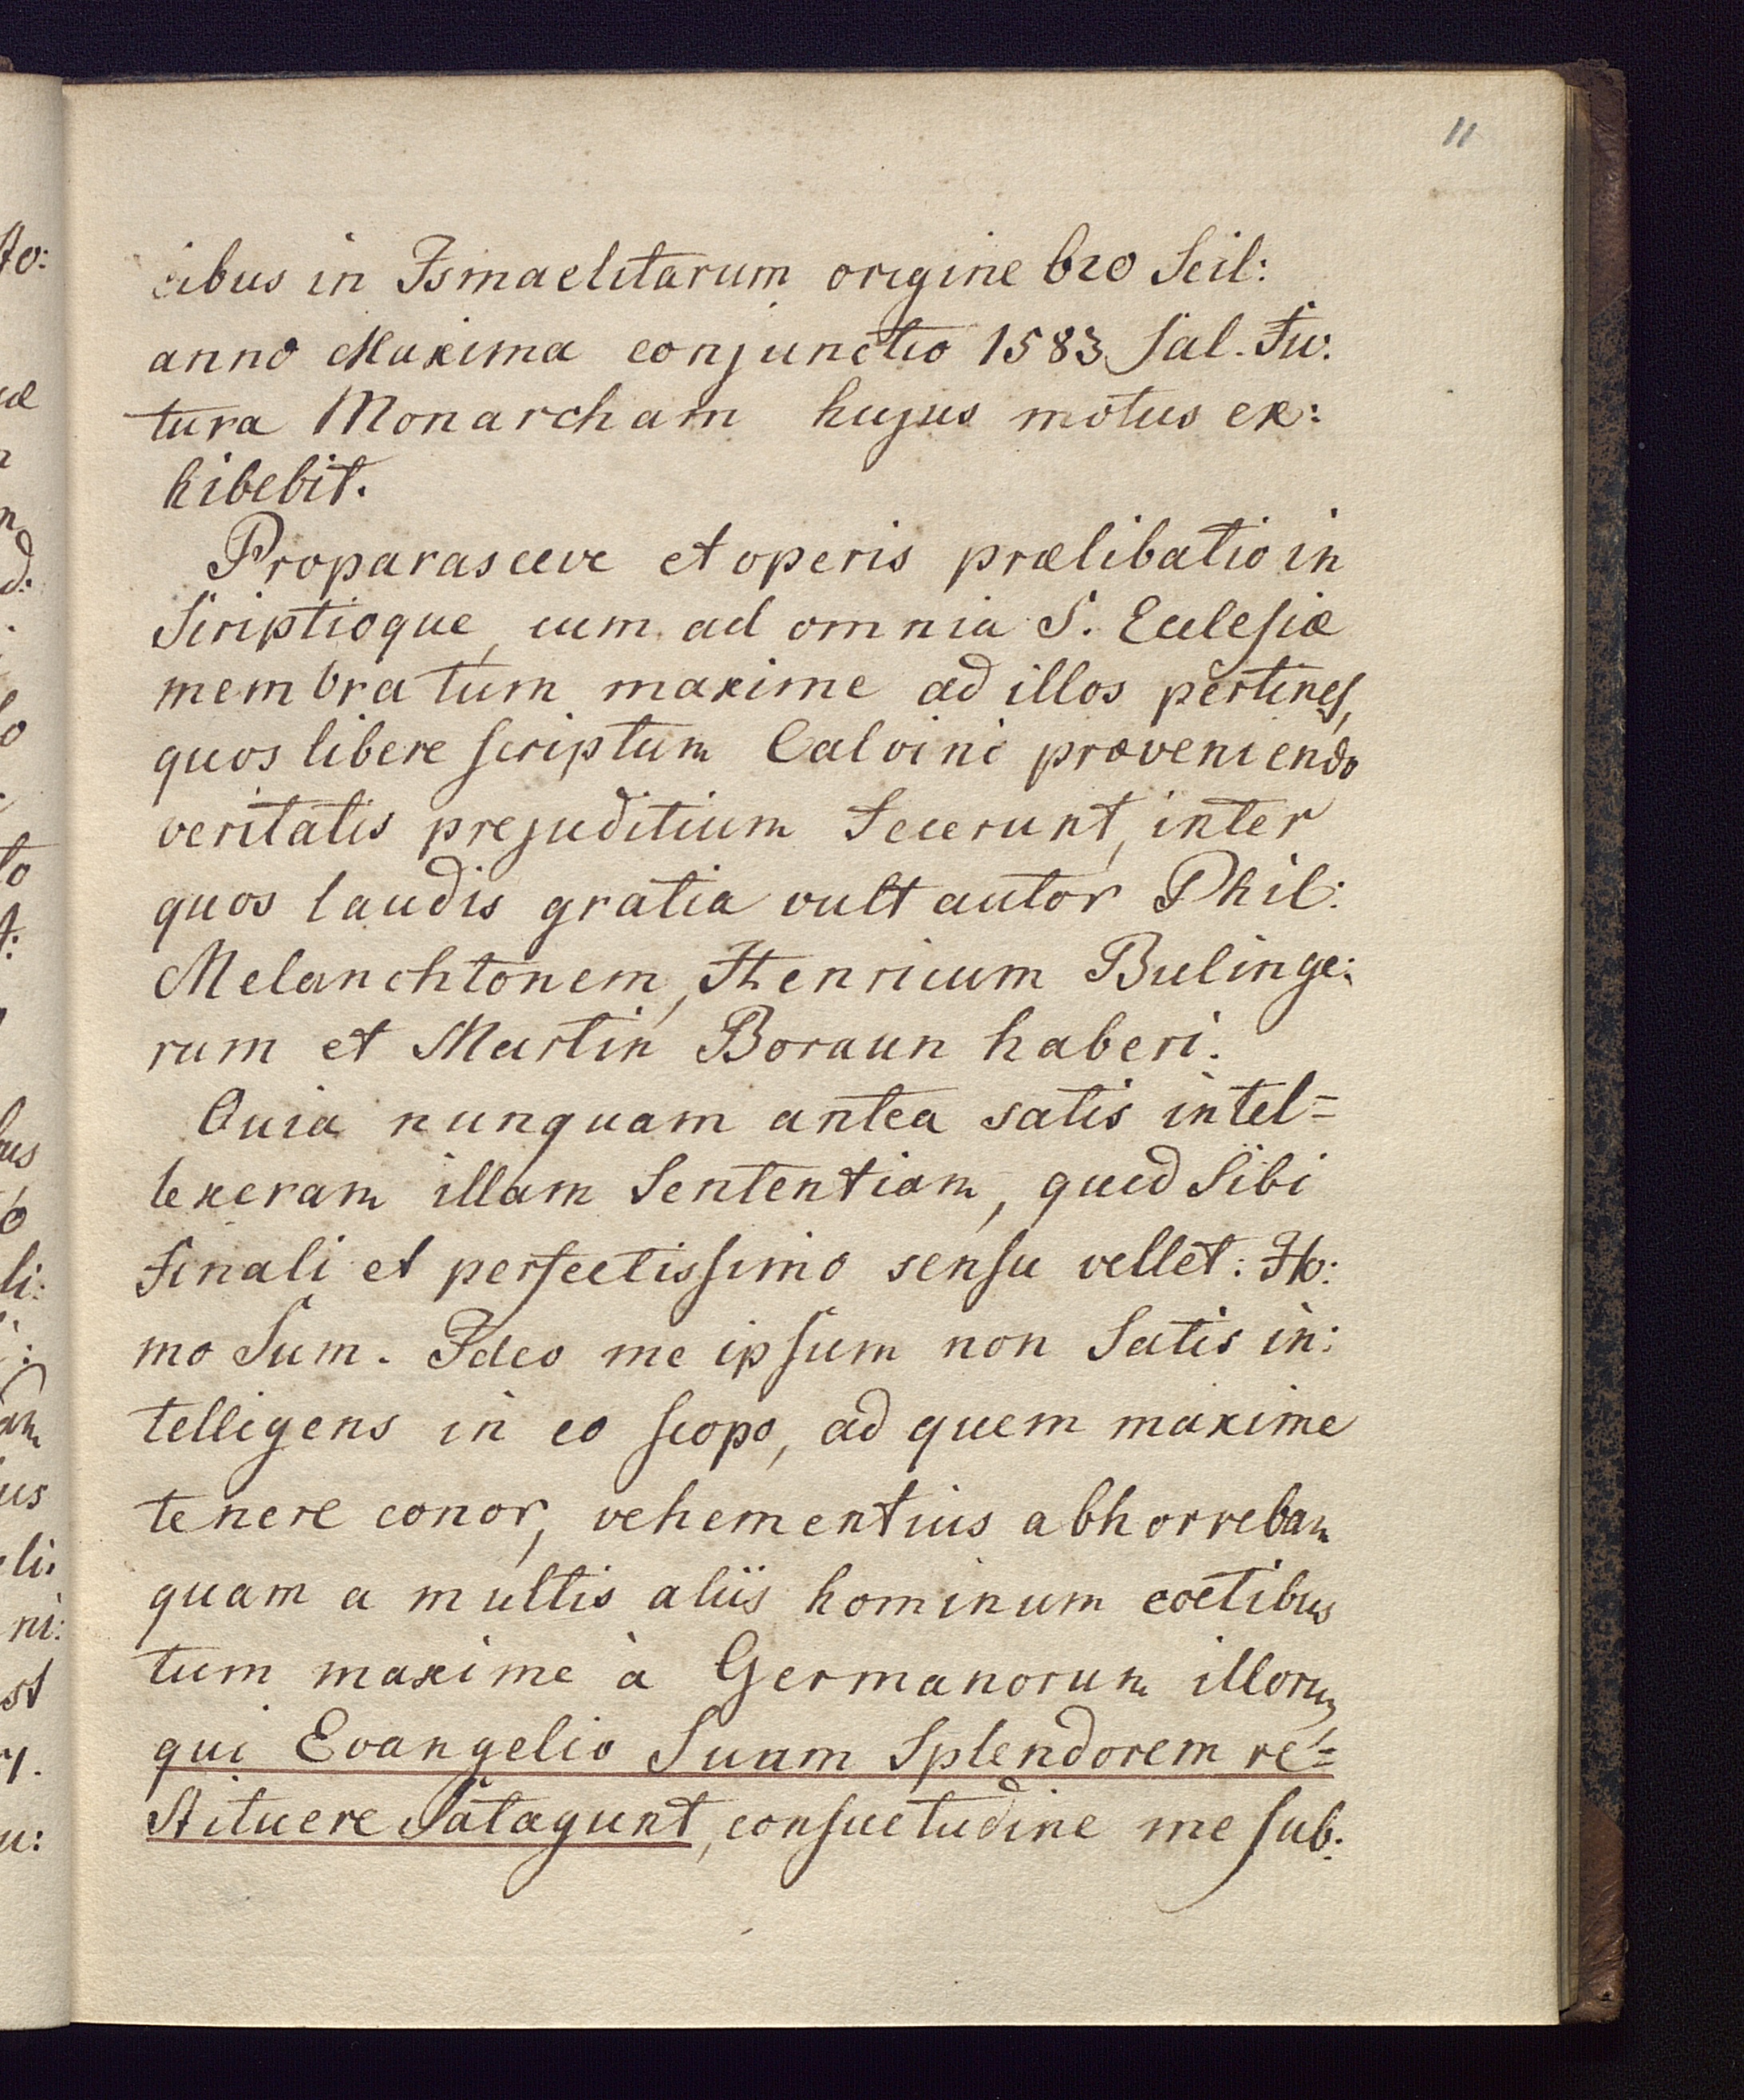 11
cibus in Ismaelitarum origine 620 Scil:
anno Maxima conjunctio 1583 Sal. Fu:
tura Monarcham hujus motus ex:
hibebit.
Proparasceve et operis prælibatio in
Scriptioque, cum ad omnia S. Ecclesiæ
membra tum maxime ad illos pertines,
quos libere scriptum Calvini præveniendo
veritatis prejuditium fecerunt, inter
quos laudis gratia vult autor Phil:
Melanchtonem, Henricum Bulinge:
rum et Martin Boraun haberi.
Quia nunquam antea satis intel=
lexeram illam Sententiam, quid Sibi
finali et perfectissimo sensu vellet: Ho:
mo Sum. Ideo me ipsum non Satis in:
telligens in eo scopo, ad quem maxime
tenere conor, vehementius abhorrebam
quam a multis aliis hominum coetibus
tum maxime à Germanorum illorum
qui Evangelio Suum Splendorem re=
stituere Satagunt, consuetudine me sub: